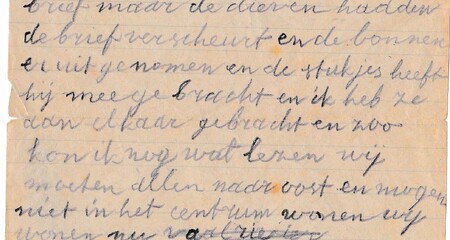 brief maar de dieven hadden
de brief verscheurt en de bonnen
er uit genomen en de stukjes heeft
hij mee ge bracht en ik heb ze
aan elkaar gebracht en zoo
kon ik nog wat lezen wij
moeten allen naar oost en mogen
niet in het centrum wonen wij
wonen nu